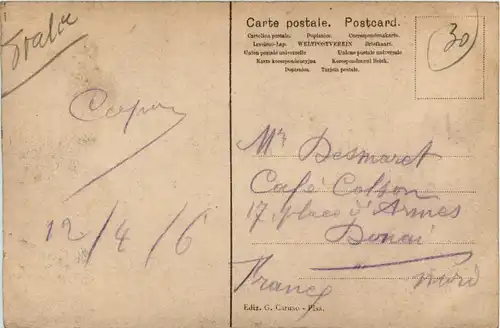 Italie
12/4/6
Carte postale. Postcard.
Cartolina postale. Dopisnice. Correspondenzkarte.
WELTPOSTVEREIN Briefkaart.
Union postale universelle
Karta korespondencyjna Korespondenční lístek.
Dopisnica. Tarjeta postale.
30
Mr Desmaret
Café Colson
17, place d'Armes
Douai
Nord
France
Ediz. G. Caruso - Pisa.